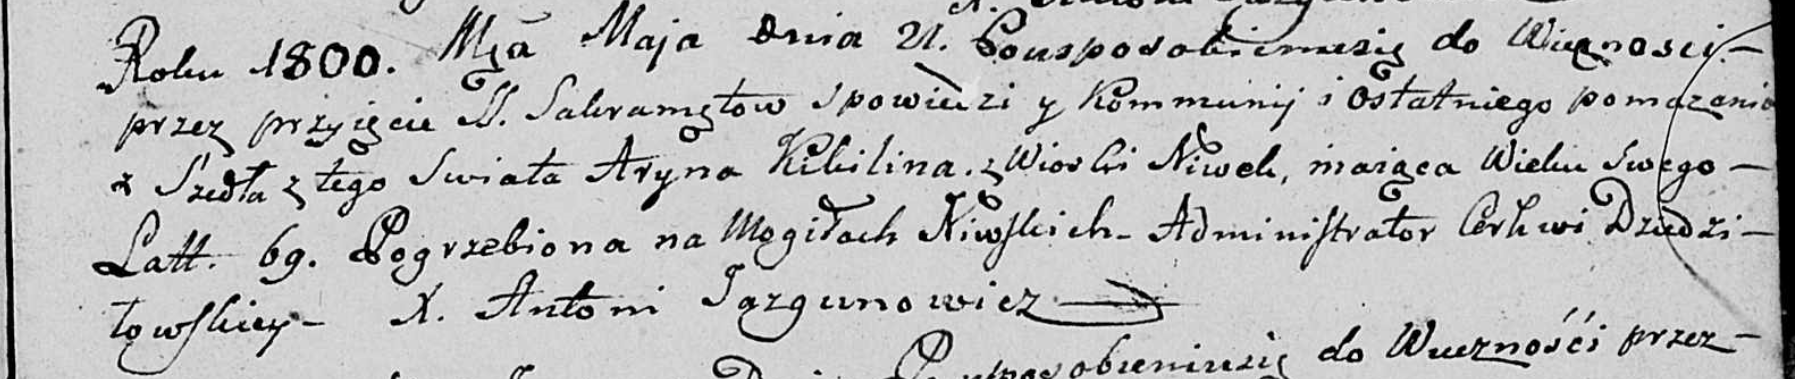 Roku 1800. Mca Maja Dnia 21. Pousposobieniusię do Wiecznosci –
przez przyięcie SS. Sakramętow Spowiedzi y Kommunij i Ostatniego pomazania
z Szedła z tego Swiata Aryna Kikilina. z Wioski Niwek, maiąca Wieku Swego –
Latt. 69. Pogrzebiona na Mogiłach Niwskich – Administrator Cerkwi Dziedzi –
łowskiey – X. Antoni Jazgunowicz
do Wiecznośći przez –